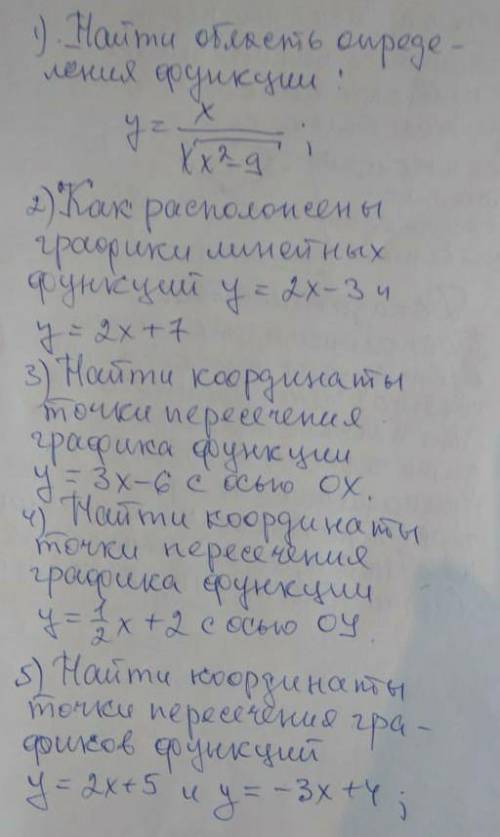 1) Найти область опреде-
ления функции:
y = x/√(x²-9) ;
2) Как расположены
графики линейных
функций y = 2x-3 и
y = 2x+7
3) Найти координаты
точки пересечения
графика функции
y = 3x-6 с осью OX.
4) Найти координаты
точки пересечения
графика функции
y = 1/2 x + 2 с осью OY.
5) Найти координаты
точки пересечения гра-
фиков функций
y = 2x+5 и y = -3x+4;